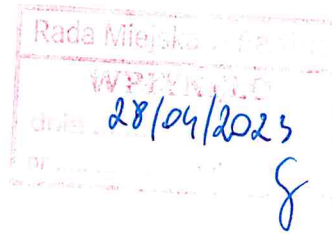 Rada Miejska
WPŁYNĘŁO
dnia 28/04/2023
nr